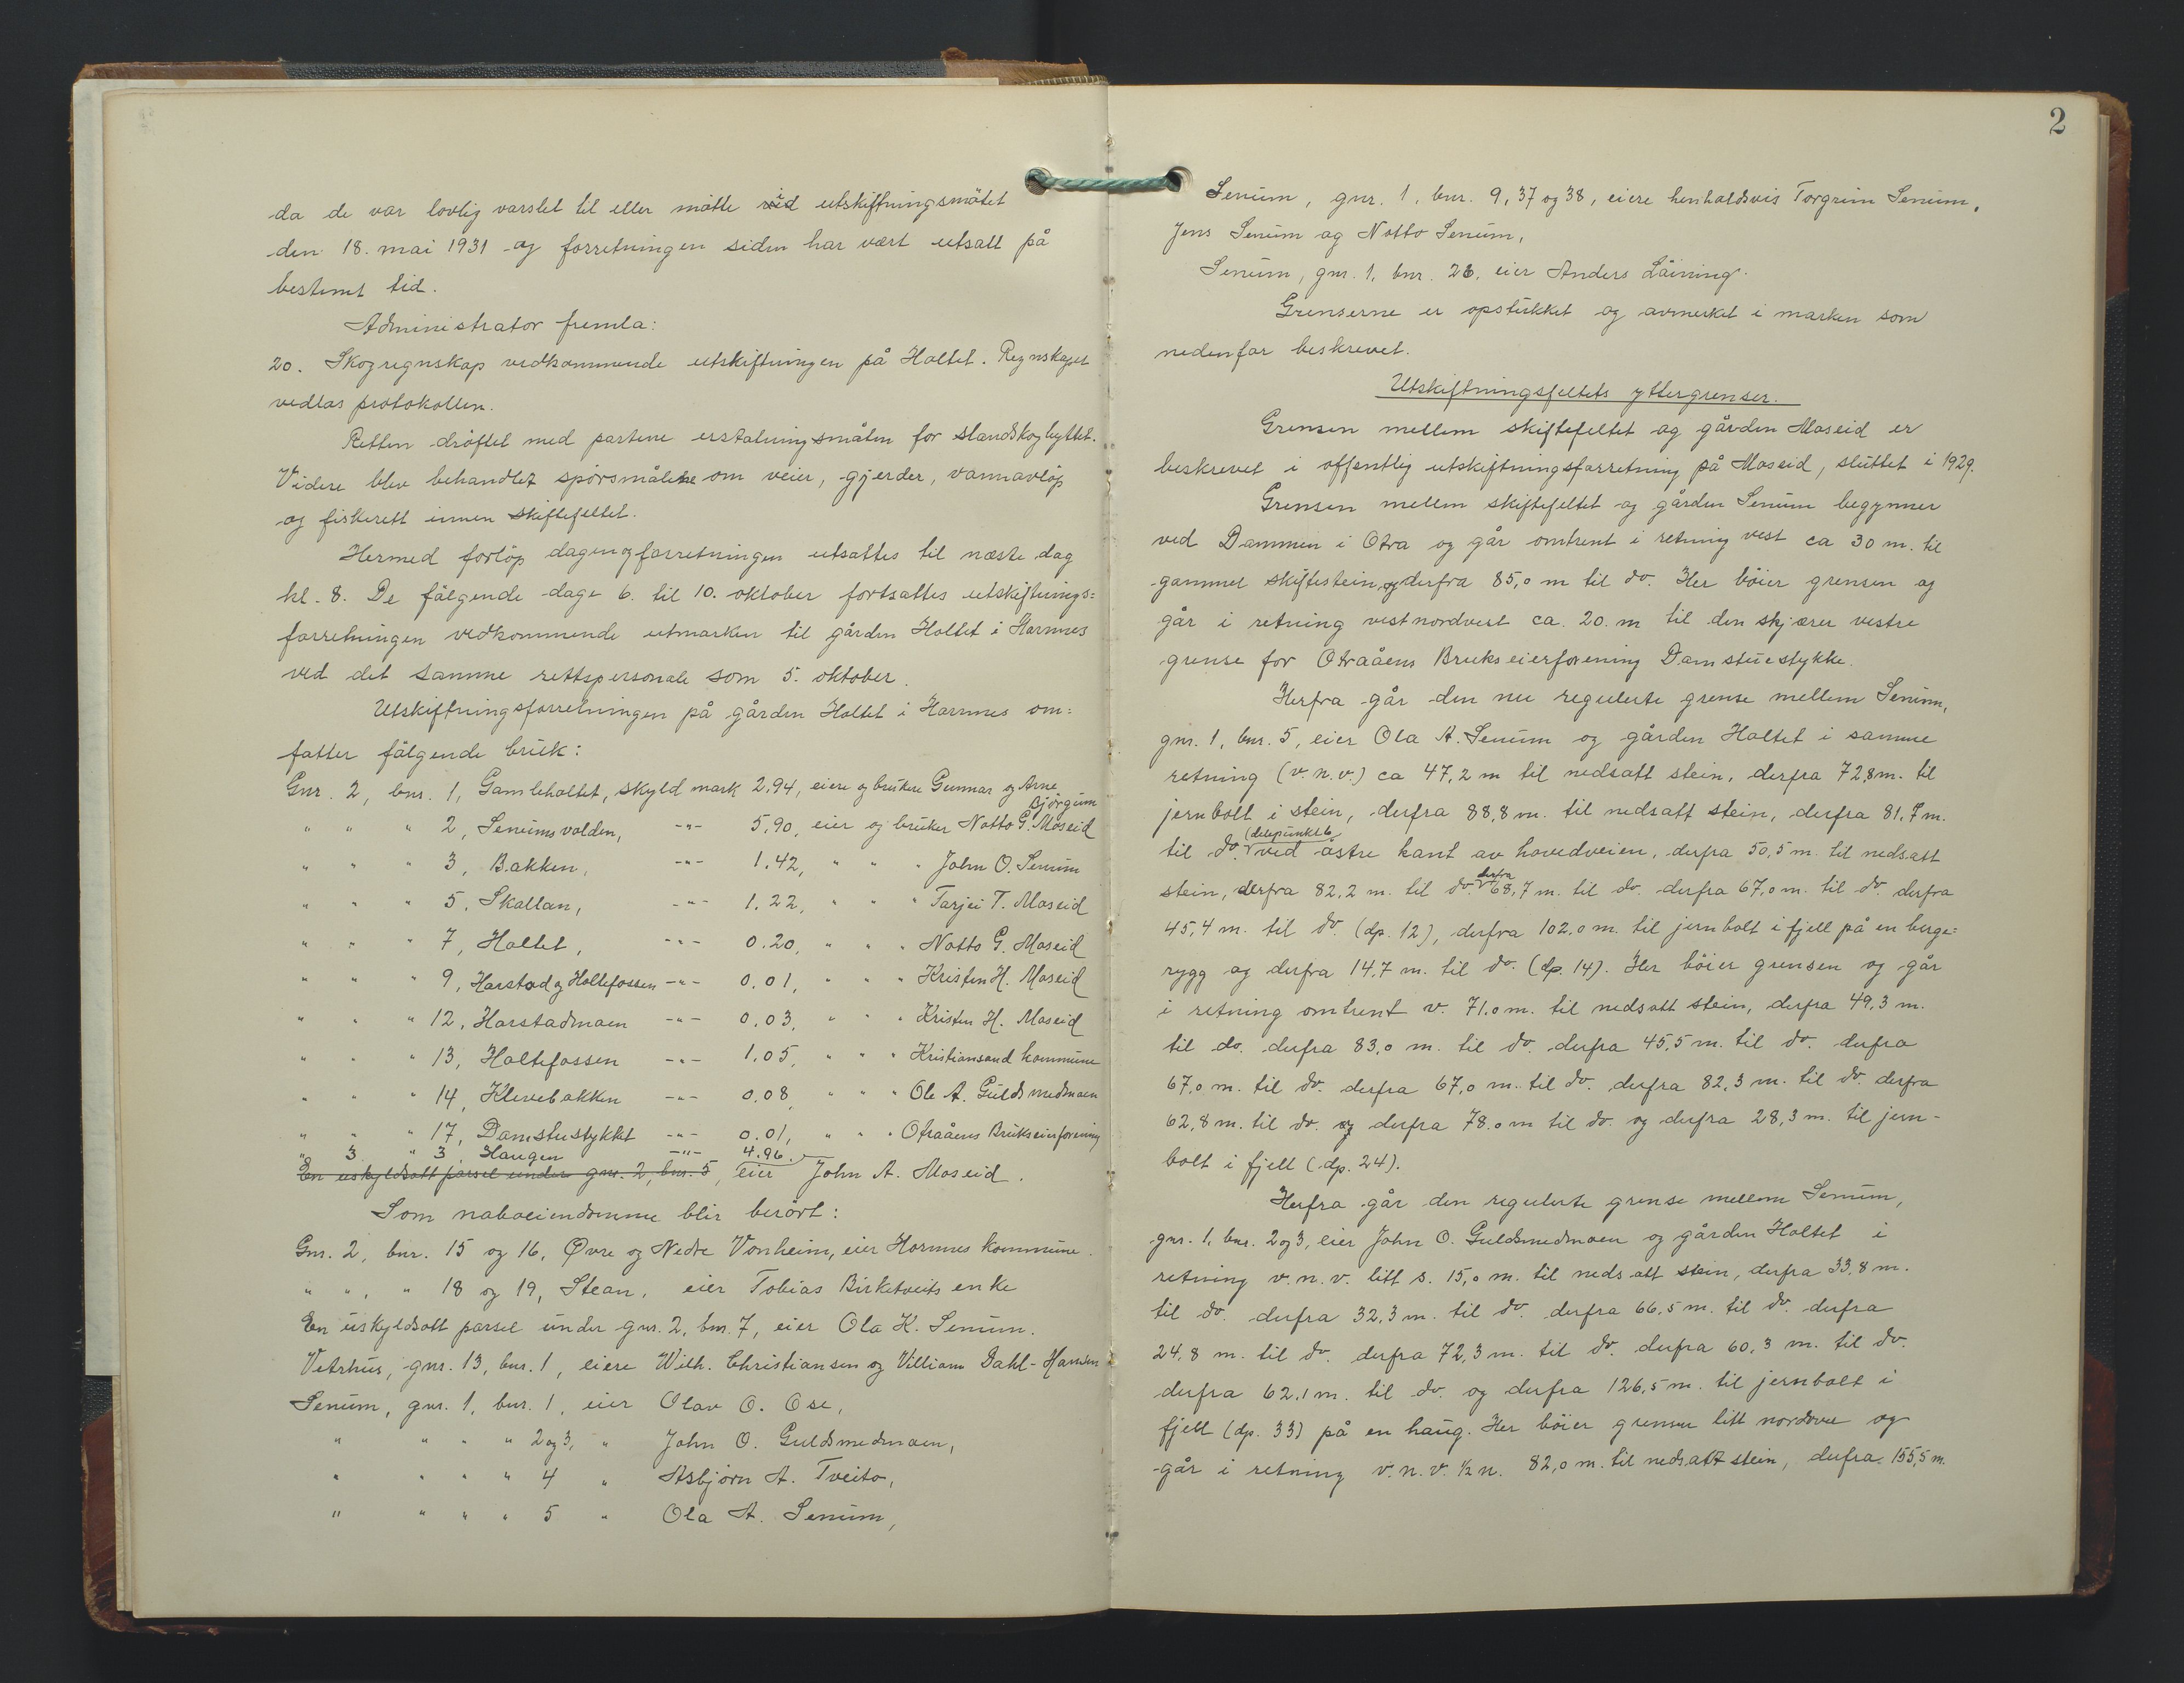 da de var lovlig varslet til eller møtte ved utskiftningsmøtet
den 18. mai 1931 og forretningen siden har vært utsatt på
bestemt tid.
Administrator fremla:
20. Skogregnskap vedkommende utskiftningen på Holtet. Regnskapet
vedlas protokollen.
Retten drøftet med partene erstatningsmåten for standskogbyttet.
Videre blev behandlet spørsmålene om veier, gjerder, vannavløp
og fiskerett innen skiftefeltet.
Hermed forløp dagen og forretningen utsattes til næste dag
kl. 8. De følgende dage 6. til 10. oktober fortsattes utskiftnings=
forretningen vedkommende utmarken til gården Holtet i Hornnes
ved det samme rettspersonale som 5. oktober.
Utskiftningsforretningen på gården Holtet i Hornnes om=
fatter følgende bruk:
Gnr. 2, bnr. 1, Gamleholtet, skyld mark 2,94, eiere og brukere Gunnar og Arne
Bjørgum
" " " 2, Senumsvolden, -"- 5,90, eier og bruker Notto G. Moseid
" " " 3, Bakken, -"- 1.42, " " " John O. Senum
" " " 5, Skollan, -"- 1.22, " " " Tarjei T. Moseid
" " " 7, Holtet, -"- 0.20, " " " Notto G. Moseid
" " " 9, Harstad og Holtefossen -"- 0.01, " " " Kristen H. Moseid
" " " 12, Harstadmoen -"- 0.03, " " " Kristen H. Moseid
" " " 13, Holtefossen -"- 1.05, " " " Kristiansand kommune
" " " 14, Klevebakken -"- 0.08, " " " Ole A. Guldsmedmoen
" " " 17, Damstustykket -"- 0.01, " " " Otraåens Brukseierforening
" 3 " 3 Haugen -"- 4.96.
En uskyldsatt parsel under gnr. 2, bnr. 5, eier John A. Moseid.
Som naboeiendomme blir berørt:
Gnr. 2, bnr. 15 og 16, Øvre og Nedre Vonheim, eier Hornnes kommune.
" " , " 18 og 19, Stean, eier Tobias Birketveits enke
En uskyldsatt parsel under gnr. 2, bnr. 7, eier Ola K. Senum.
Vetrhus, gnr. 13, bnr. 1, eiere Wilh. Christiansen og Villiam Dahl-Hansen
Senum, gnr. 1, bnr. 1, eier Olav O. Ose,
" " " " 2 og 3, " John O. Guldsmedmoen,
" " " " 4 " Asbjørn A. Tveito,
" " " " 5 " Ola A. Senum,
2
Senum, gnr. 1, bnr. 9, 37 og 38, eiere henholdsvis Torgrim Senum,
Jens Senum og Notto Senum,
Senum, gnr. 1, bnr. 26, eier Anders Låining.
Grenserne er opstukket og avmerket i marken som
nedenfor beskrevet.
Utskiftningsfeltets yttergrenser.
Grensen mellem skiftefeltet og gården Moseid er
beskrevet i offentlig utskiftningsforretning på Moseid, sluttet i 1929.
Grensen mellem skiftefeltet og gården Senum begynner
ved Dammen i Otra og går omtrent i retning vest ca 30 m. til
gammel skiftestein, og derfra 85,0 m til do. Her bøier grensen og
går i retning vestnordvest ca. 20. m til den skjærer vestre
grense for Otraåens Brukseierforening Damstuestykke.
Herfra går den nu regulerte grense mellem Senum,
gnr. 1, bnr. 5, eier Ola A. Senum og gården Holtet i samme
retning (v.n.v.) ca 47,2 m til nedsatt stein, derfra 72,8 m. til
jernbolt i stein, derfra 88,8 m. til nedsatt stein, derfra 81,7 m.
(delepunkt 6
til do. ved østre kant av hovedveien, derfra 50,5 m. til nedsatt
derfra
stein, derfra 82,2 m. til do. 68,7 m. til do. derfra 67,0 m. til do. derfra
45,4 m. til do. (dp. 12), derfra 102,0 m. til jernbolt i fjell på en berge=
rygg og derfra 14,7 m. til do. (dp. 14). Her bøier grensen og går
i retning omtrent v. 71,0 m. til nedsatt stein, derfra 49,3 m.
til do. derfra 83,0 m. til do. derfra 45,5 m. til do. derfra
67,0 m. til do. derfra 67,0 m. til do. derfra 82,3 m. til do. derfra
62,8 m. til do. og derfra 78,0 m til do. og derfra 28,3 m. til jern-
bolt i fjell (dp. 24).
Herfra går den regulerte grense mellem Senum,
gnr. 1, bnr. 2 og 3, eier John O. Guldsmedmoen og gården Holtet i
retning v.n.v. litt s. 15,0 m. til nedsatt stein, derfra 33,8 m.
til do. derfra 32,3 m. til do. derfra 66,5 m. til do. derfra
24,8 m. til do. derfra 72,3 m. til do. derfra 60,3 m. til do.
derfra 62,1 m. til do. og derfra 126,5 m. til jernbolt i
fjell (dp. 33) på en haug. Her bøier grensen litt nordover og
går i retning v.n.v. ½ n. 82,0 m. til nedsatt stein, derfra 155,5 m.